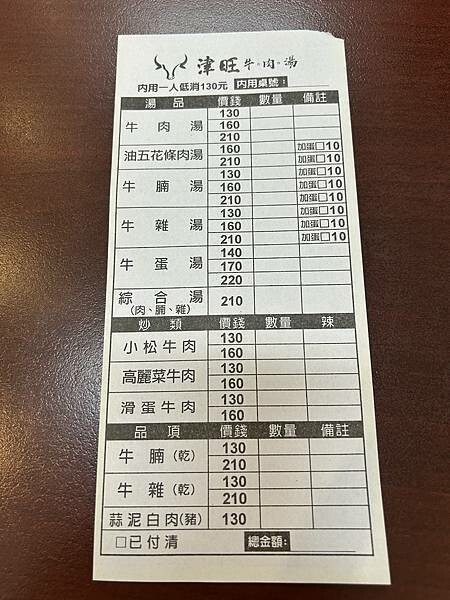 津旺牛肉湯
內用一人低消130元 內用桌號：
湯品 價錢 數量 備註
牛肉湯 130
160
210
油五花條肉湯 160 加蛋□10
210 加蛋□10
牛腩湯 130 加蛋□10
160 加蛋□10
210 加蛋□10
牛雜湯 130 加蛋□10
160 加蛋□10
210 加蛋□10
牛蛋湯 140
170
220
綜合湯 210
(肉、腩、雜)
炒類 價錢 數量 辣
小松牛肉 130
160
高麗菜牛肉 130
160
滑蛋牛肉 130
160
品項 價錢 數量 備註
牛腩(乾) 130
210
牛雜(乾) 130
210
蒜泥白肉(豬) 130
□已付清 總金額：